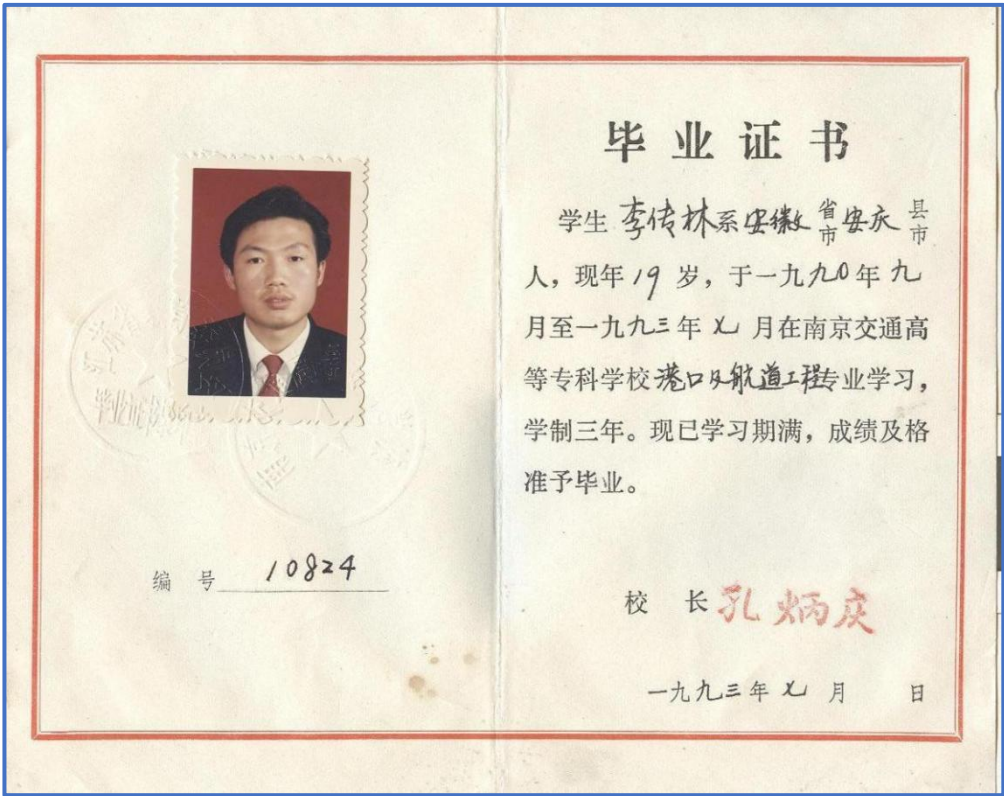 毕业证书
学生 李传林系安徽省市安庆县市
人，现年19岁，于一九九0年九
月至一九九三年七月在南京交通高
等专科学校港口及航道工程专业学习，
学制三年。现已学习期满，成绩及格
准予毕业。
编号 10824
校长 孔炳庆
一九九三年七月 日